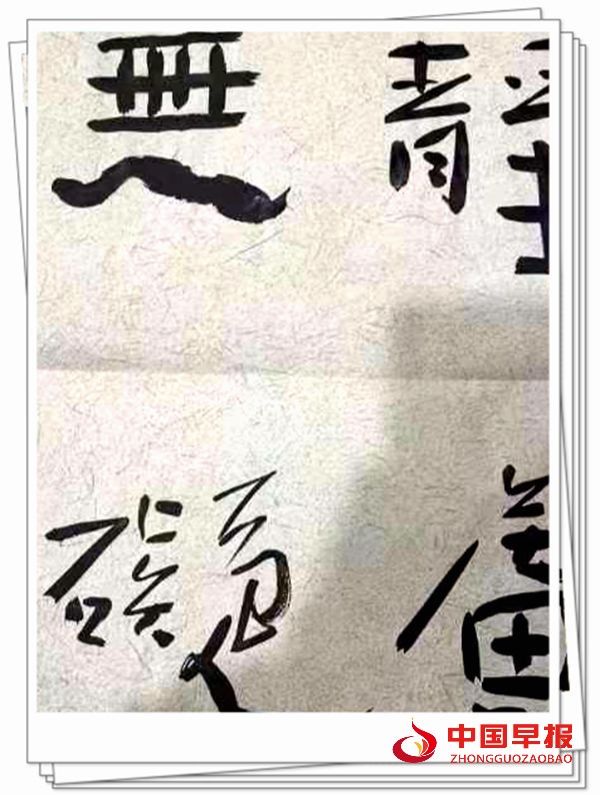 靜
無礙
中国早报
ZHONGGUOZAOBAO